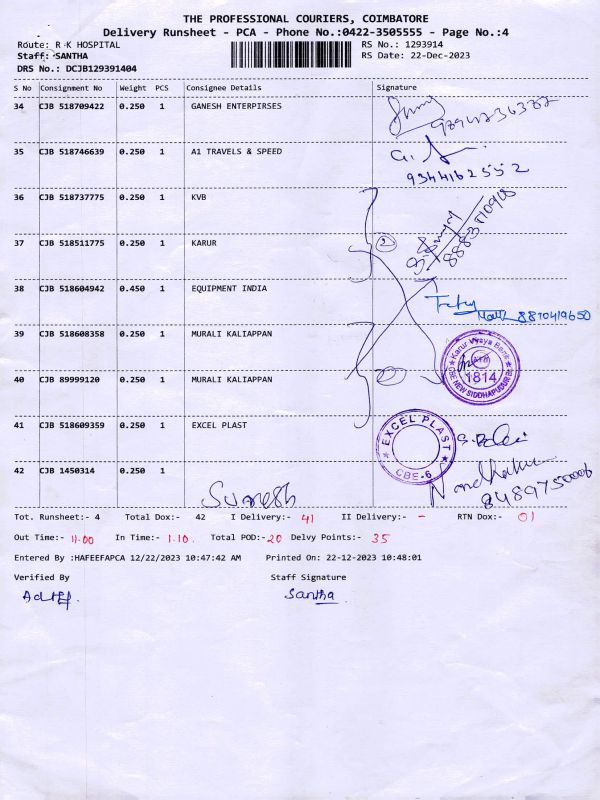 THE PROFESSIONAL COURIERS, COIMBATORE
Delivery Runsheet - PCA - Phone No.:0422-3505555 - Page No.:4
Route: R K HOSPITAL
RS No.: 1293914
Staff: SANTHA
RS Date: 22-Dec-2023
DRS No.: DCJB129391404
S No Consignment No Weight PCS Consignee Details Signature
34 CJB 518709422 0.250 1 GANESH ENTERPIRSES
35 CJB 518746639 0.250 1 A1 TRAVELS & SPEED
9344162552
36 CJB 518737775 0.250 1 KVB
37 CJB 518511775 0.250 1 KARUR 2
38 CJB 518604942 0.450 1 EQUIPMENT INDIA
8870419650
39 CJB 518608358 0.250 1 MURALI KALIAPPAN
Karur Vysya Bank
1814
40 CJB 89999120 0.250 1 MURALI KALIAPPAN
41 CJB 518609359 0.250 1 EXCEL PLAST
EXCEL PLAST
CBE-6
42 CJB 1450314 0.250 1
Suresh
8489750006
Tot. Runsheet:- 4 Total Dox:- 42 I Delivery:- 41 II Delivery:- - RTN Dox:- 01
Out Time:- 11.00 In Time:- 1.10. Total POD:-20 Delvy Points:- 35
Entered By :HAFEEFAPCA 12/22/2023 10:47:42 AM Printed On: 22-12-2023 10:48:01
Verified By Staff Signature
Santha